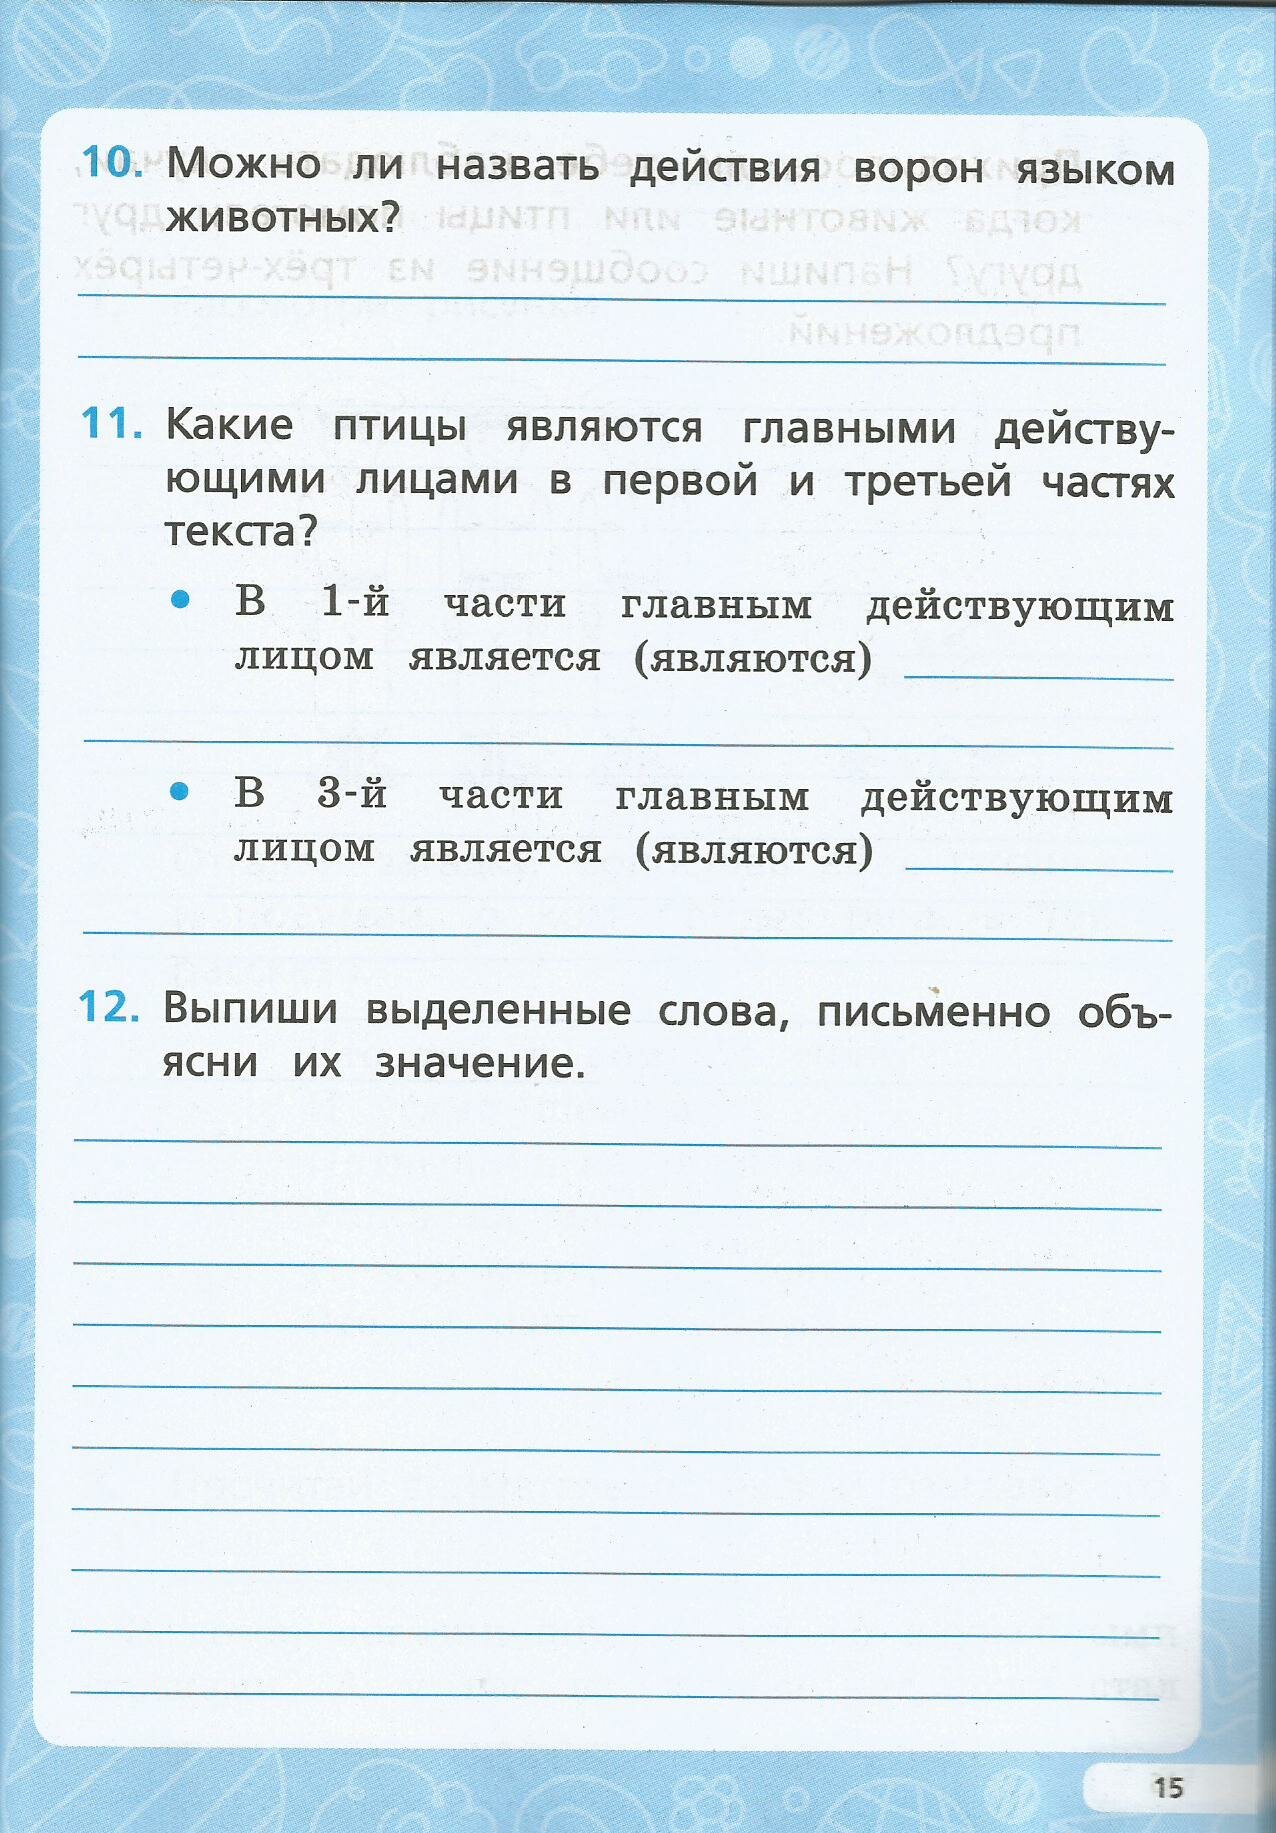 10. Можно ли назвать действия ворон языком
животных?
11. Какие птицы являются главными действу-
ющими лицами в первой и третьей частях
текста?
• В 1-й части главным действующим
лицом является (являются)
• В 3-й части главным действующим
лицом является (являются)
12. Выпиши выделенные слова, письменно объ-
ясни их значение.
15